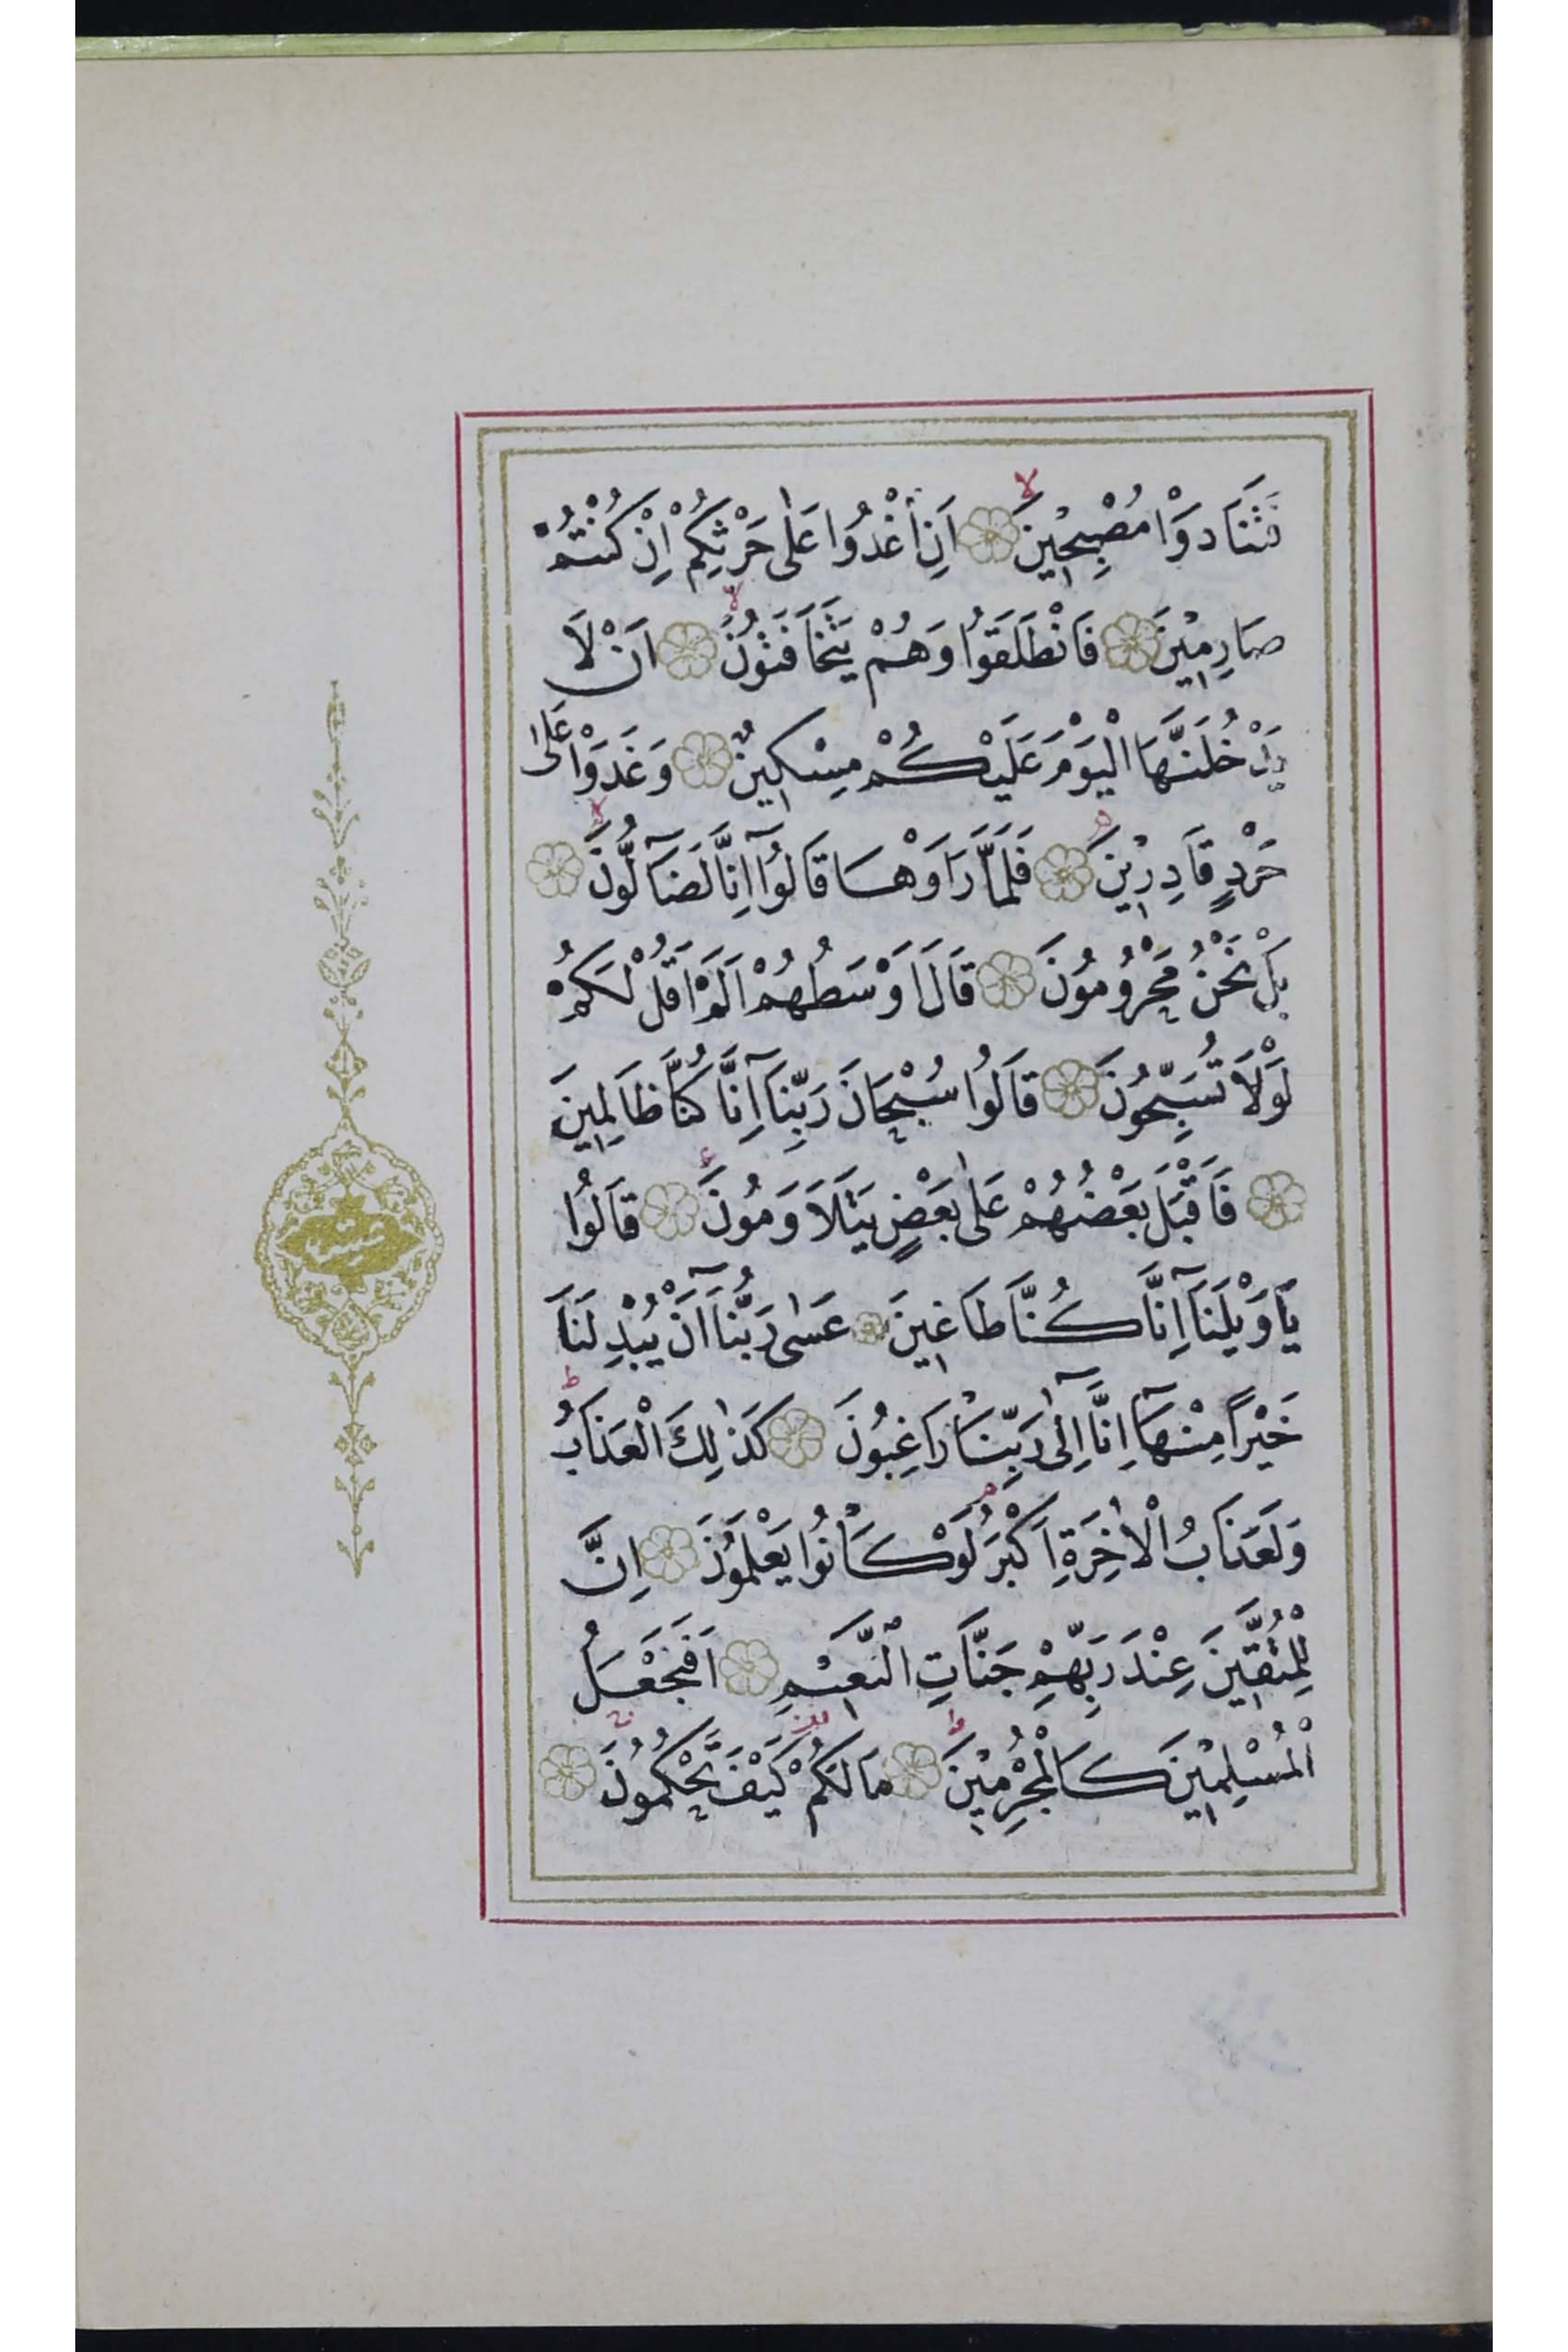 فَتَنَادَوْا مُصْبِحِينَ اَنِ اغْدُوا عَلٰى حَرْثِكُمْ اِنْ كُنْتُمْ
صَارِمِينَ فَانْطَلَقُوا وَهُمْ يَتَخَافَتُونَ اَنْ لَا
يَدْخُلَنَّهَا الْيَوْمَ عَلَيْكُمْ مِسْكِينٌ وَغَدَوْا عَلٰى
حَرْدٍ قَادِرِينَ فَلَمَّا رَاَوْهَا قَالُوٓا اِنَّا لَضَآلُّونَ
بَلْ نَحْنُ مَحْرُومُونَ قَالَ اَوْسَطُهُمْ اَلَمْ اَقُلْ لَكُمْ
لَوْلَا تُسَبِّحُونَ قَالُوا سُبْحَانَ رَبِّنَآ اِنَّا كُنَّا ظَالِمِينَ
فَاَقْبَلَ بَعْضُهُمْ عَلٰى بَعْضٍ يَتَلَاوَمُونَ قَالُوا
يَا وَيْلَنَآ اِنَّا كُنَّا طَاغِينَ عَسٰى رَبُّنَآ اَنْ يُبْدِلَنَا
خَيْرًا مِنْهَآ اِنَّآ اِلٰى رَبِّنَا رَاغِبُونَ كَذٰلِكَ الْعَذَابُ
وَلَعَذَابُ الْاٰخِرَةِ اَكْبَرُ لَوْ كَانُوا يَعْلَمُونَ اِنَّ
لِلْمُتَّقِينَ عِنْدَ رَبِّهِمْ جَنَّاتِ النَّعِيمِ اَفَنَجْعَلُ
الْمُسْلِمِينَ كَالْمُجْرِمِينَ مَا لَكُمْ كَيْفَ تَحْكُمُونَ